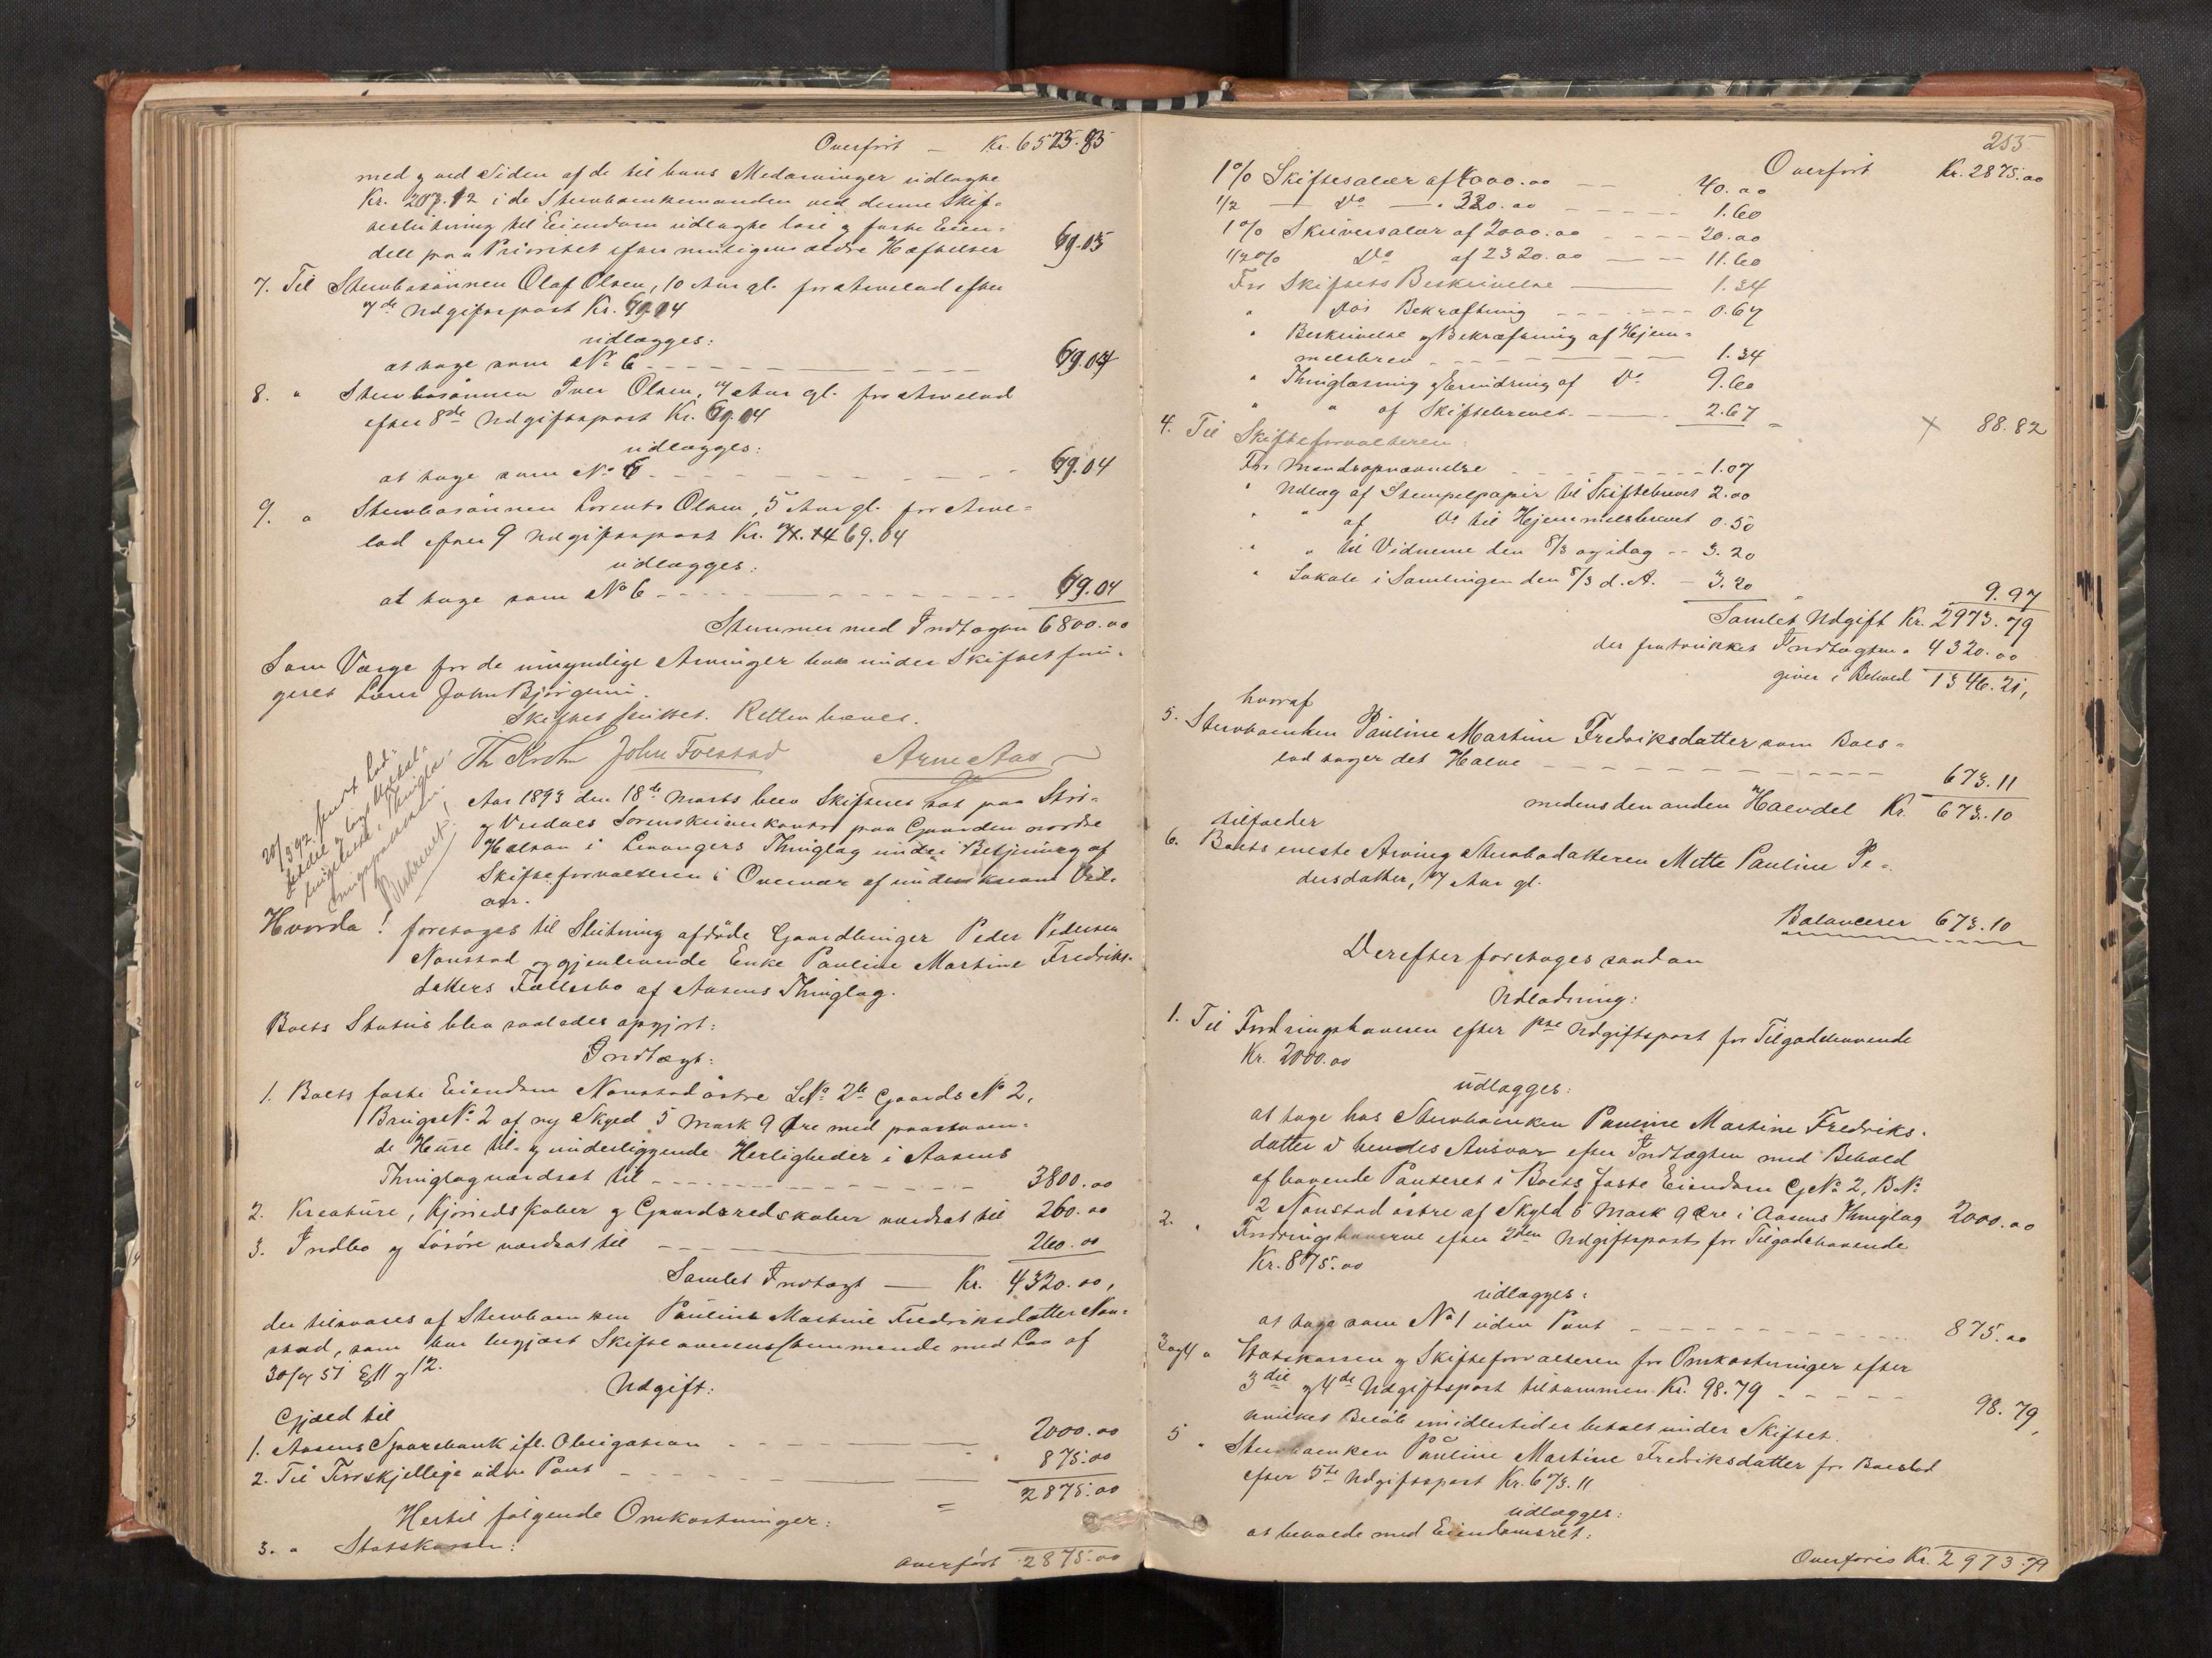 Overført — Kr. 6523.83
med og ved Siden af de til hans Medarvinger udlagte
Kr. 207.12 i de Stervboenkemanden ved denne Skif-
teslutning til Eiendom udlagte løse og faste Eien-
dele paa Prioritet efter muligens ældre Heftelser 69.05
7. Til Stervbosønnen Olaf Olsen, 10 Aar gl. for Arvelod efter
7de Udgiftspost Kr. 69.04
udlægges:
at tage som No 6 69.04
8. " Stervbosønnen Iver Olsen, 7 Aar gl. for Arvelod
efter 8de Udgiftspost Kr. 69.04
udlægges:
at tage som No 6 69.04
9. " Stervbosønnen Lorents Olsen, 5 Aar gl. for Arve-
lod efter 9 Udgiftspost Kr. 69.04
udlægges:
at tage som No 6 69.04
Stemmer med Indtægten 6800.00
Som Værge for de umyndige Arvinger har under Skiftet fun-
geret John Bjørgum.
Skiftet sluttet. Retten hævet.
Th Krohn John Foestad Arne Aas
Aar 1893 den 18de Marts blev Skifteret sat paa Stør-
og Verdals Sorenskriverkontor paa Gaarden nordre
Halsan i Levangers Thinglag under Betjening af
Skifteforvalteren i Overvær af underskrevne Vid-
ner.
Hvorda! foretoges til Slutning afdøde Gaardbruger Peder Pedersen
Nonstad og gjenlevende Enke Pauline Martine Fredriks-
datters Fællesbo af Aasens Thinglag.
Boets Status blev saaledes opgjort:
Indtægt:
1. Boets faste Eiendom Nonstad østre LNo 2b Gaards No 2,
Brugs No 2 af ny Skyld 5 Mark 9 Øre med paastaaen-
de Huse til- og underliggende Herligheder i Aasens
Thinglag værdsat til 3800.00
2. Kreature, Kjøredskaber og Gaardsredskaber værdsat til 260.00
3. Indbo og Løsøre værdsat til 260.00
Samlet Indtægt — Kr. 4320.00,
der tilsvares af Stervboenken Pauline Martine Fredriksdatter Non-
stad, som har begjært Skifte overensstemmende med Lov af
30/7 51 § 11 og 12.
Udgift:
Gjæld til
1. Aasens Sparebank ifl. Obligation 2000.00
2. Til Forskjellige uden Pant 875.00
= 2875.00
Hertil følgende Omkostninger:
3. " Statskassen:
Overført 2875.00
255
Overført Kr. 2875.00
1 % Skiftesalær af 4000.00 40.00
1/2 — Do — " 320.00 1.60
1 % Skriversalær af 2000.00 20.00
1/2 % Do af 2320.00 11.60
For Skiftets Beskrivelse 1.34
" Dos Bekræftning 0.67
" Beskrivelse og Bekræftning af Hjem-
melsbrev 1.34
" Thinglæsning og Erindring af Do 9.60
" " af Skiftebrevet 2.67
× 88.82
4. Til Skifteforvalteren:
For Mandsopnævnelse 1.07
" Udlæg af Stempelpapir til Skiftebrevet 2.00
" " af Do til Hjemmelsbrevet 0.50
" " til Vidnerne den 8/3 og idag 3.20
" Lokale i Samlingen den 8/3 d. A. 3.20
9.97
Samlet Udgift Kr. 2973.79
der fratrukket Indtægten " 4320.00
giver i Behold 1346.21,
hvoraf
5. Stervboenken Pauline Martine Fredriksdatter som Boes-
lod tager det Halve 673.11
medens den anden Halvdel Kr. 673.10
tilfalder
6. Boets eneste Arving Stervbodatteren Mette Pauline Pe-
dersdatter, 17 Aar gl.
Balancerer 673.10
Derefter foretoges saadan
Udlodning:
1. Til Fordringshaveren efter 1ste Udgiftspost for Tilgodehavende
Kr. 2000.00
udlægges:
at tage hos Stervboenken Pauline Martine Fredriks-
datter i hendes Ansvar efter Indtægten med Behold
af havende Panteret i Boets faste Eiendom GNo 2, BNo
2 Nonstad østre af Skyld 5 Mark 9 Øre i Aasens Thinglag 2000.00
2. " Fordringshaverne efter 2den Udgiftspost for Tilgodehavende
Kr. 875.00
udlægges:
at tage som No 1 uden Pant 875.00
3 og 4 " Statskassen og Skifteforvalteren for Omkostninger efter
3die og 4de Udgiftspost tilsammen Kr. 98.79 98.79,
hvilket Beløb imidlertid er betalt under Skiftet.
5 " Stervboenken Pauline Martine Fredriksdatter for Boeslod
efter 5te Udgiftspost Kr. 673.11
udlægges:
at beholde med Eiendomsret:
Overføres Kr. 2973.79